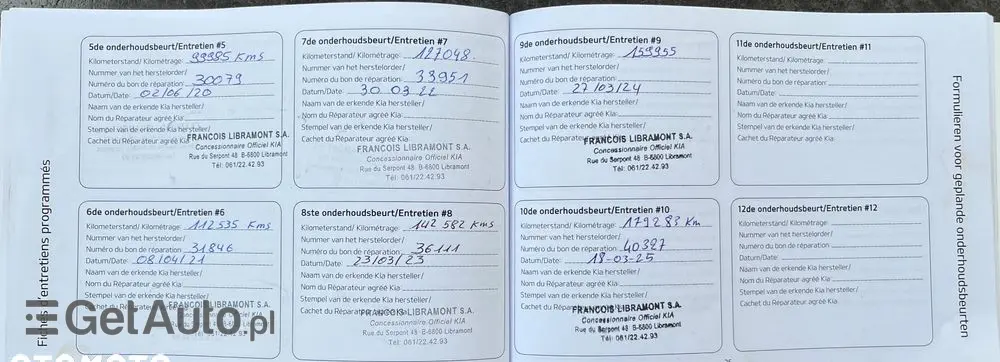 Fiches d'entretiens programmés
5de onderhoudsbeurt/Entretien #5
Kilometerstand/ Kilométrage: 99985 Kms
Nummer van het herstelorder/
Numéro du bon de réparation: 30079
Datum/Date: 02/06/20
Naam van de erkende Kia hersteller/
Nom du Réparateur agréé Kia:
Stempel van de erkende Kia hersteller/
Cachet du Réparateur agréé Kia:
FRANCOIS LIBRAMONT S.A.
Concessionnaire Officiel KIA
Rue du Serpont 48 B-6800 Libramont
Tél: 061/22.42.93
6de onderhoudsbeurt/Entretien #6
Kilometerstand/ Kilométrage: 112535 Kms
Nummer van het herstelorder/
Numéro du bon de réparation: 31846
Datum/Date: 08/04/21
Naam van de erkende Kia hersteller/
Nom du Réparateur agréé Kia:
Stempel van de erkende Kia hersteller/
Cachet du Réparateur
FRANCOIS LIBRAMONT S.A.
Concessionnaire Officiel KIA
7de onderhoudsbeurt/Entretien #7
Kilometerstand/ Kilométrage: 127048.
Nummer van het herstelorder/
Numéro du bon de réparation: 33951
Datum/Date: 30 03 22
Naam van de erkende Kia hersteller/
Nom du Réparateur agréé Kia:
Stempel van de erkende Kia hersteller/
Cachet du Réparateur agréé Kia:
FRANCOIS LIBRAMONT S.A.
Concessionnaire Officiel KIA
Rue du Serpont 48 B-6800 Libramont
Tél: 061/22.42.93
8ste onderhoudsbeurt/Entretien #8
Kilometerstand/ Kilométrage: 142 582 Kms
Nummer van het herstelorder/
Numéro du bon de réparation: 36111
Datum/Date: 23/03/23
Naam van de erkende Kia hersteller/
Nom du Réparateur agréé Kia:
Stempel van de erkende Kia hersteller/
Cachet du
FRANCOIS LIBRAMONT S.A.
Concessionnaire Officiel KIA
Rue du Serpont 48 B-6800 Libramont
Tél: 061/22.42.93
9de onderhoudsbeurt/Entretien #9
Kilometerstand/ Kilométrage: 159955
Nummer van het herstelorder/
Numéro du bon de réparation:
Datum/Date: 27/03/24
Naam van de erkende Kia hersteller/
Nom du Réparateur agréé Kia:
Stempel van de erkende Kia hersteller/
Cachet du Réparateur
FRANCOIS LIBRAMONT S.A.
Concessionnaire Officiel KIA
Rue du Serpont 48 B-6800 Libramont
Tél: 061/22.42.93
10de onderhoudsbeurt/Entretien #10
Kilometerstand/ Kilométrage: 179283 Km
Nummer van het herstelorder/
Numéro du bon de réparation: 40327
Datum/Date: 18-03-25
Naam van de erkende Kia hersteller/
Nom du Réparateur agréé Kia:
Stempel van de erkende Kia hersteller/
Cachet du Réparateur
FRANCOIS LIBRAMONT S.A.
Concessionnaire Officiel KIA
Rue du Serpont 48 B-6800 Libramont
Tél: 061/22.42.93
11de onderhoudsbeurt/Entretien #11
Kilometerstand/ Kilométrage:
Nummer van het herstelorder/
Numéro du bon de réparation:
Datum/Date:
Naam van de erkende Kia hersteller/
Nom du Réparateur agréé Kia:
Stempel van de erkende Kia hersteller/
Cachet du Réparateur agréé Kia:
12de onderhoudsbeurt/Entretien #12
Kilometerstand/ Kilométrage:
Nummer van het herstelorder/
Numéro du bon de réparation:
Datum/Date:
Naam van de erkende Kia hersteller/
Nom du Réparateur agréé Kia:
Stempel van de erkende Kia hersteller/
Cachet du Réparateur agréé Kia:
Formulieren voor geplande onderhoudsbeurten
GetAuto.pl